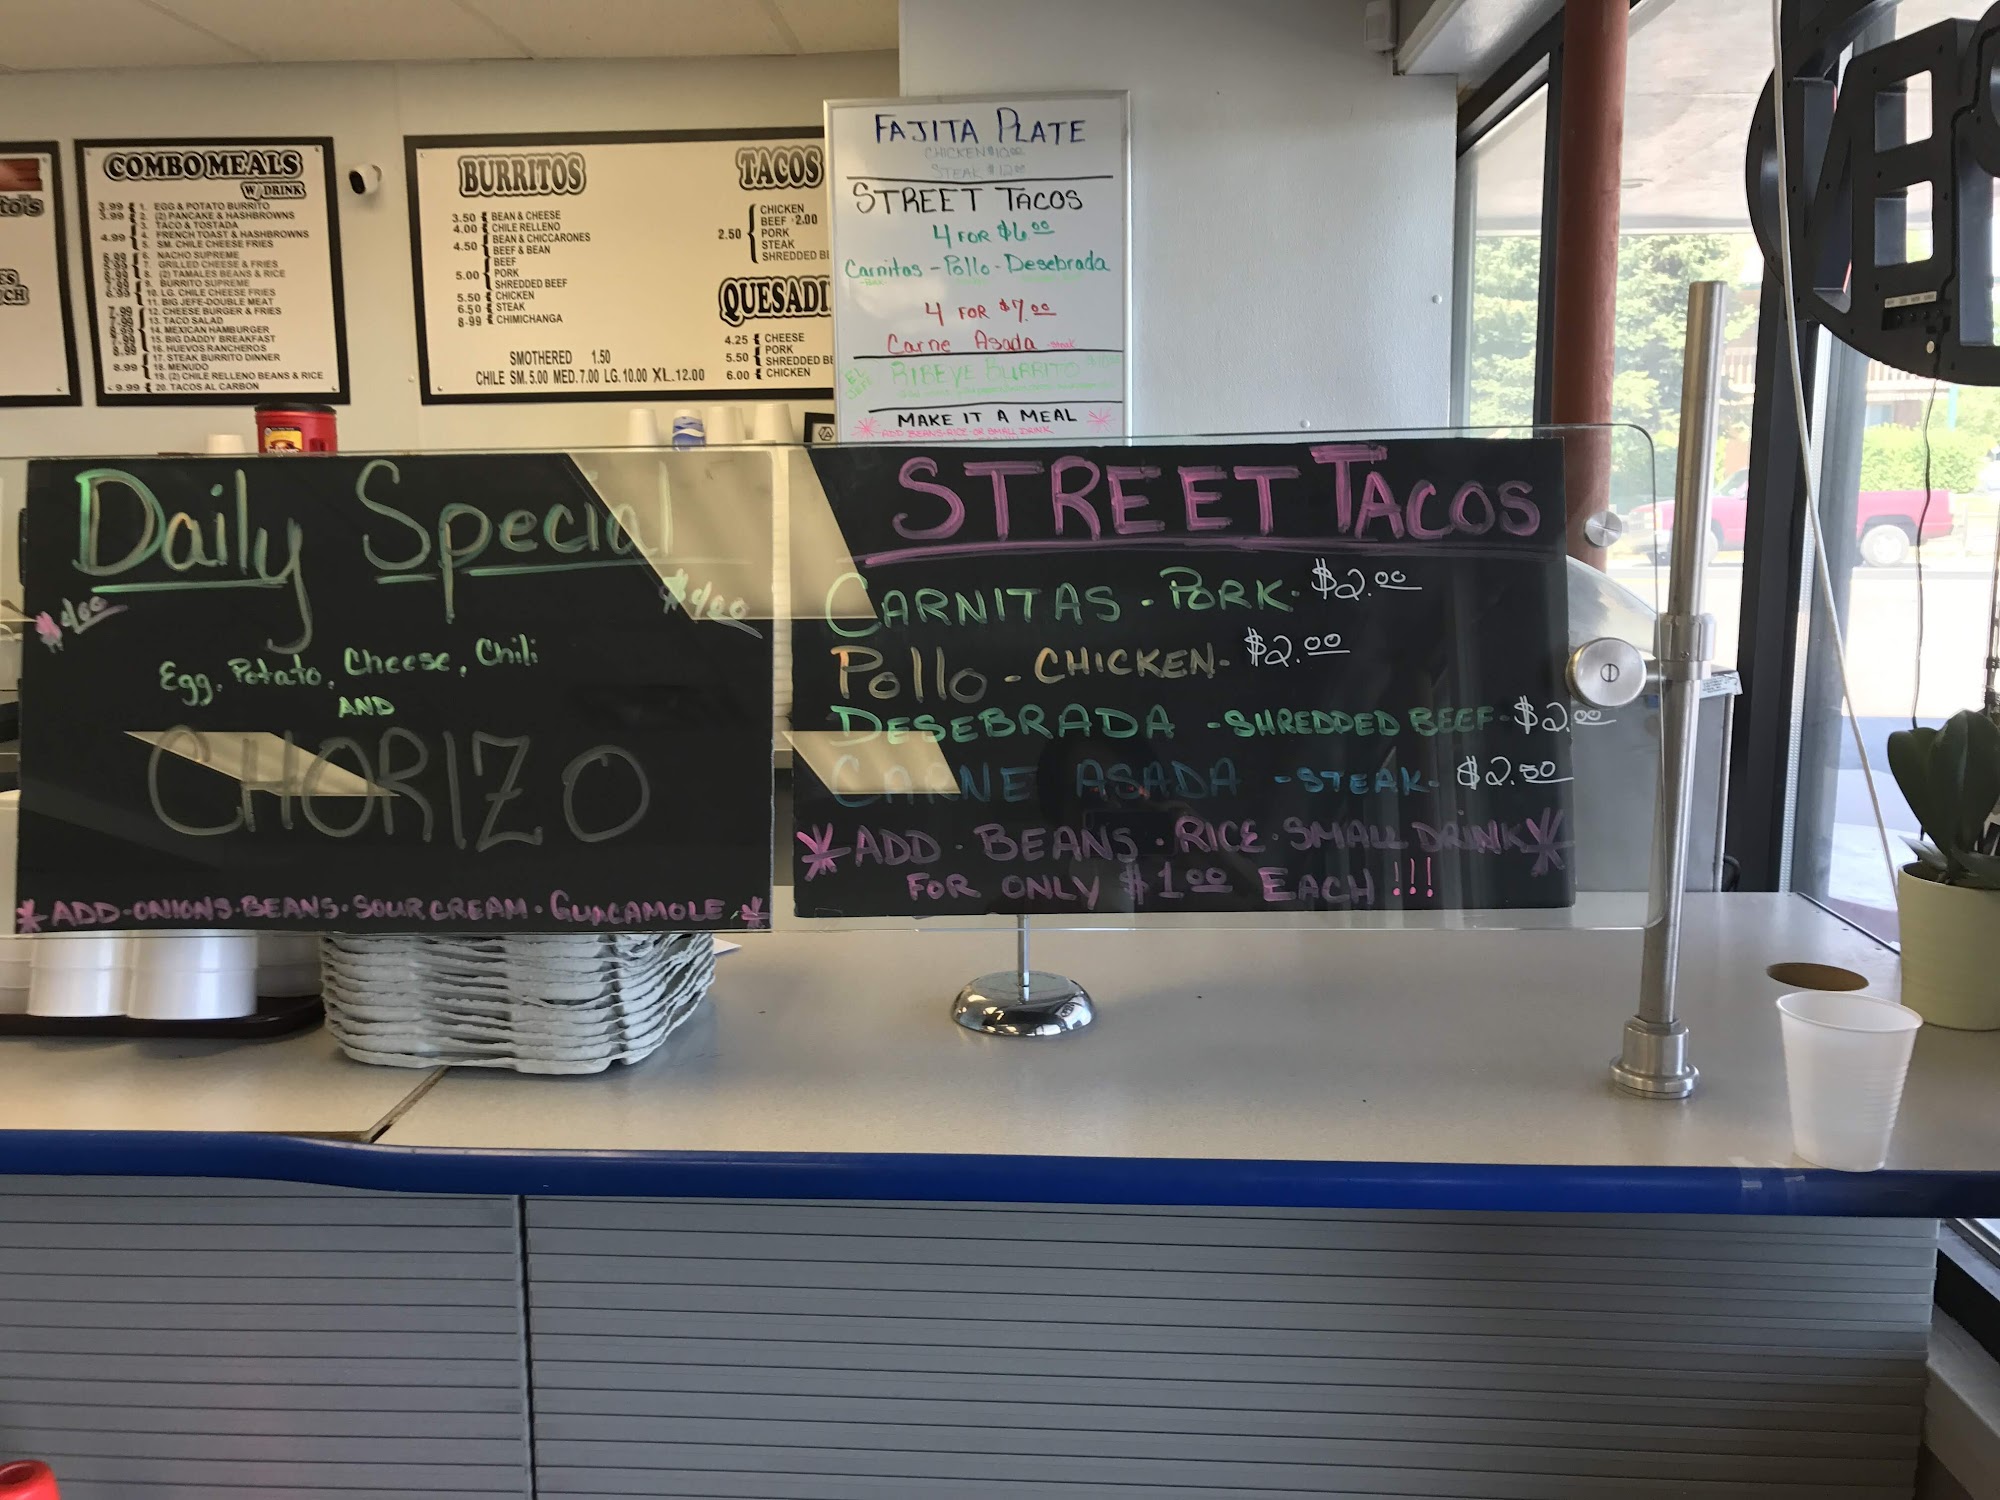 to's
ES
CH
COMBO MEALS
W/ DRINK
3.99 1. EGG & POTATO BURRITO
3.99 2. (2) PANCAKE & HASHBROWNS
3. TACO & TOSTADA
4.99 4. FRENCH TOAST & HASHBROWNS
5. SM. CHILE CHEESE FRIES
6. NACHO SUPREME
7. GRILLED CHEESE & FRIES
8. (2) TAMALES BEANS & RICE
9. BURRITO SUPREME
6.99 10. LG. CHILE CHEESE FRIES
11. BIG JEFE-DOUBLE MEAT
7.99 12. CHEESE BURGER & FRIES
13. TACO SALAD
14. MEXICAN HAMBURGER
15. BIG DADDY BREAKFAST
8.99 16. HUEVOS RANCHEROS
17. STEAK BURRITO DINNER
8.99 18. MENUDO
19. (2) CHILE RELLENO BEANS & RICE
9.99 20. TACOS AL CARBON
BURRITOS
3.50 BEAN & CHEESE
4.00 CHILE RELLENO
4.50 BEAN & CHICCARONES
BEEF & BEAN
BEEF
5.00 PORK
SHREDDED BEEF
5.50 CHICKEN
6.50 STEAK
8-99 CHIMICHANGA
SMOTHERED 1.50
CHILE SM. 5.00 MED. 7.00 LG. 10.00 XL. 12.00
TACOS
CHICKEN
BEEF · 2.00
2.50 PORK
STEAK
SHREDDED BE
QUESADI
4.25 CHEESE
5.50 PORK
SHREDDED BE
6.00 CHICKEN
FAJITA PLATE
CHICKEN $10.00
STEAK $12.00
STREET TACOS
4 FOR $6.00
Carnitas - Pollo - Desebrada
4 FOR $7.00
Carne Asada - steak
EL JEFE
RIBEYE BURRITO
MAKE IT A MEAL
ADD BEANS-RICE-OR SMALL DRINK
Daily Special
$4.00 $4.00
Egg, Potato, Cheese, Chili
AND
CHORIZO
* ADD-ONIONS-BEANS-SOUR CREAM-GUACAMOLE *
STREET TACOS
CARNITAS - PORK - $2.00
Pollo - CHICKEN - $2.00
DESEBRADA - SHREDDED BEEF - $2.00
CARNE ASADA - STEAK - $2.50
* ADD · BEANS · RICE · SMALL DRINK *
FOR ONLY $1.00 EACH !!!